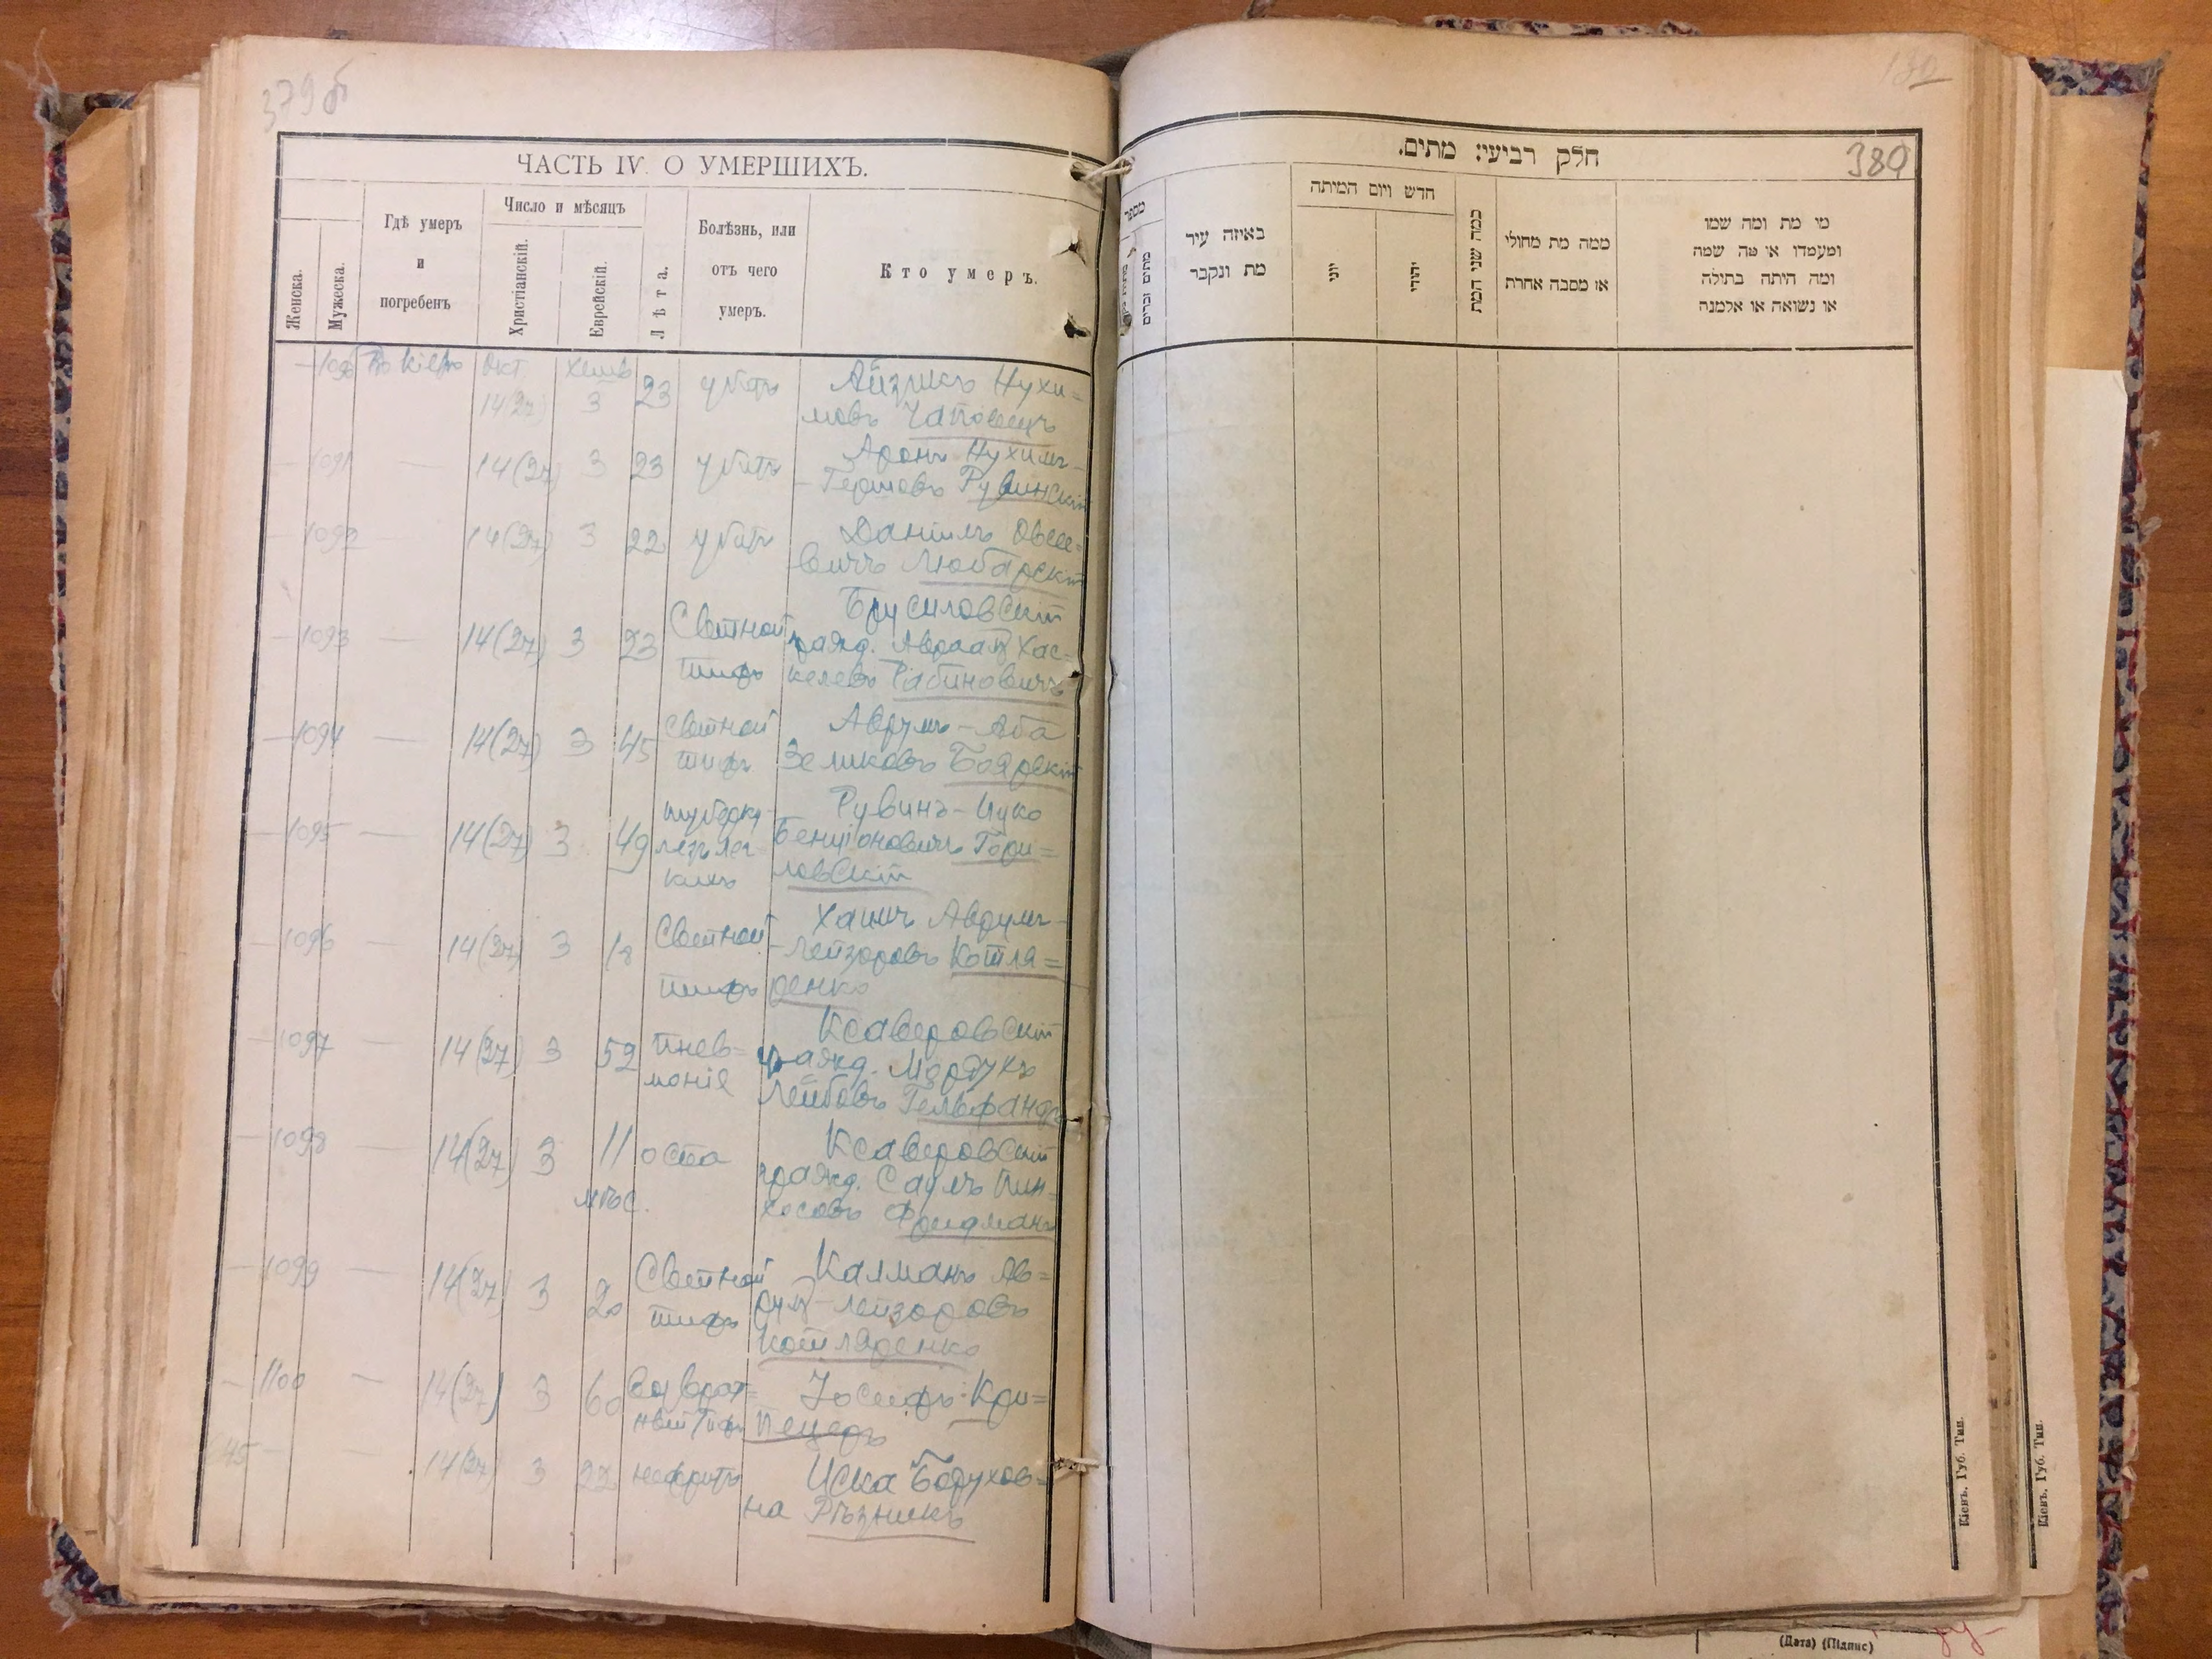 379 б
ЧАСТЬ IV. О УМЕРШИХЪ.
Женска.
Мужеска.
Гдѣ умеръ
и
погребенъ
Число и мѣсяцъ
Христіанскій.
Еврейскій.
Лѣта.
Болѣзнь, или
отъ чего
умеръ.
Кто умеръ.
1090 Въ Кіевѣ Окт Хешв
14(27) 3 23 убитъ Айзикъ Нухи=
мовъ
1091 — 14(27) 3 23 убитъ Аронъ Нухимъ-
Гершовъ Рувинскій
1092 — 14(27) 3 22 убитъ Даніилъ Овсее=
вичъ Любарскій
Брусиловскій
1093 — 14(27) 3 23 Сыпной гражд. Авраамъ Хас=
тифъ келевъ Рабиновичъ
1094 — 14(27) 3 45 Сыпной Аврумъ-Аба
тифъ Зеликовъ Боярскій
Рувинъ-Ицко
1095 — 14(27) 3 49 Бенціоновичъ Гори=
ловскій
Хаимъ Аврумъ-
1096 — 14(27) 3 18 Сыпной -Лейзоровъ Котля=
тифъ ренко
Ксаверовскій
1097 — 14(27) 3 52 пнев= гражд. Мордухъ
монія Лейбовъ Гельфандъ
1098 — 14(27) 3 11 оспа Ксаверовскій
мѣс. гражд. Саулъ Пин=
хосовъ Фридманъ
1099 — 14(27) 3 20 Сыпной Калманъ Ав=
тифъ румъ-Лейзоровъ
Котляренко
1100 — 14(27) 3 60 Возврат= Іосифъ Кри=
ный тифъ пецеръ
645 — 14(27) 3 22 нефритъ Иска Борухов=
на Рѣзникъ
380
חלק רביעי: מתים.
מספר
מתים זכרים
באיזה עיר
מת ונקבר
חדש ויום המיתה
יוני
יהודי
כמה שני המת
ממה מת מחולי
או מסבה אחרת
מי מת ומה שמו
ומעמדו או מה שמה
ומה היתה בתולה
או נשואה או אלמנה
Кіевъ. Губ. Тип.
Кіевъ. Губ. Тип.
(Дата) (Підпис)